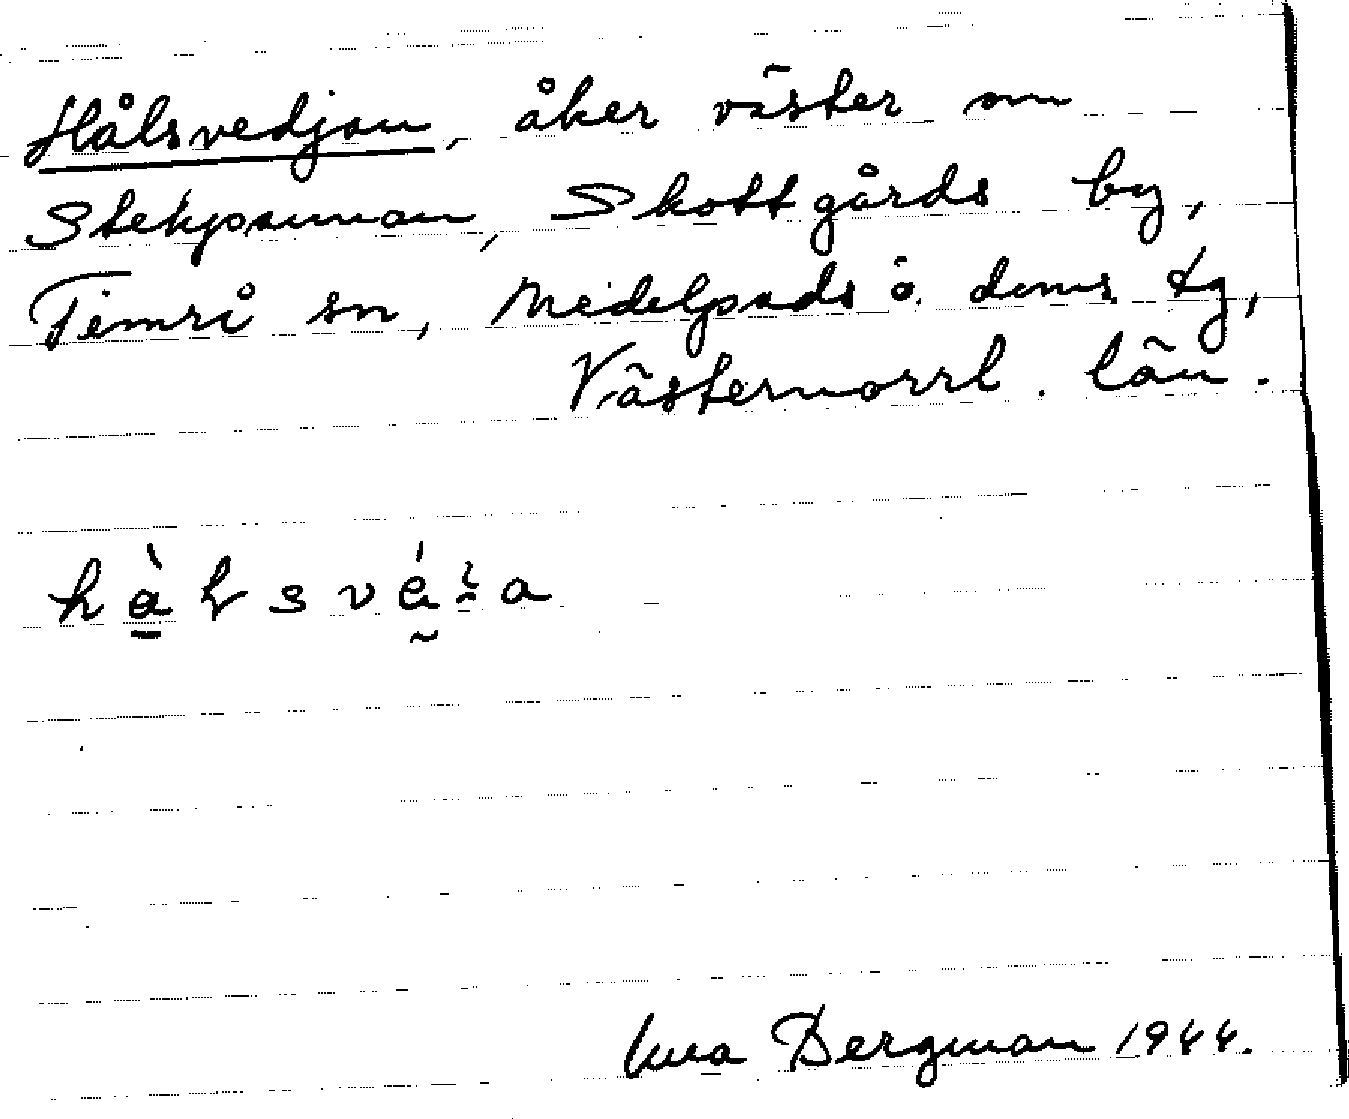 Hålsvedjan, åker väster om
Stekpannan, Skottgårds by,
Timrå sn, Medelpads ö. doms. tg,
Västernorrl. län.
Bergman 1944.